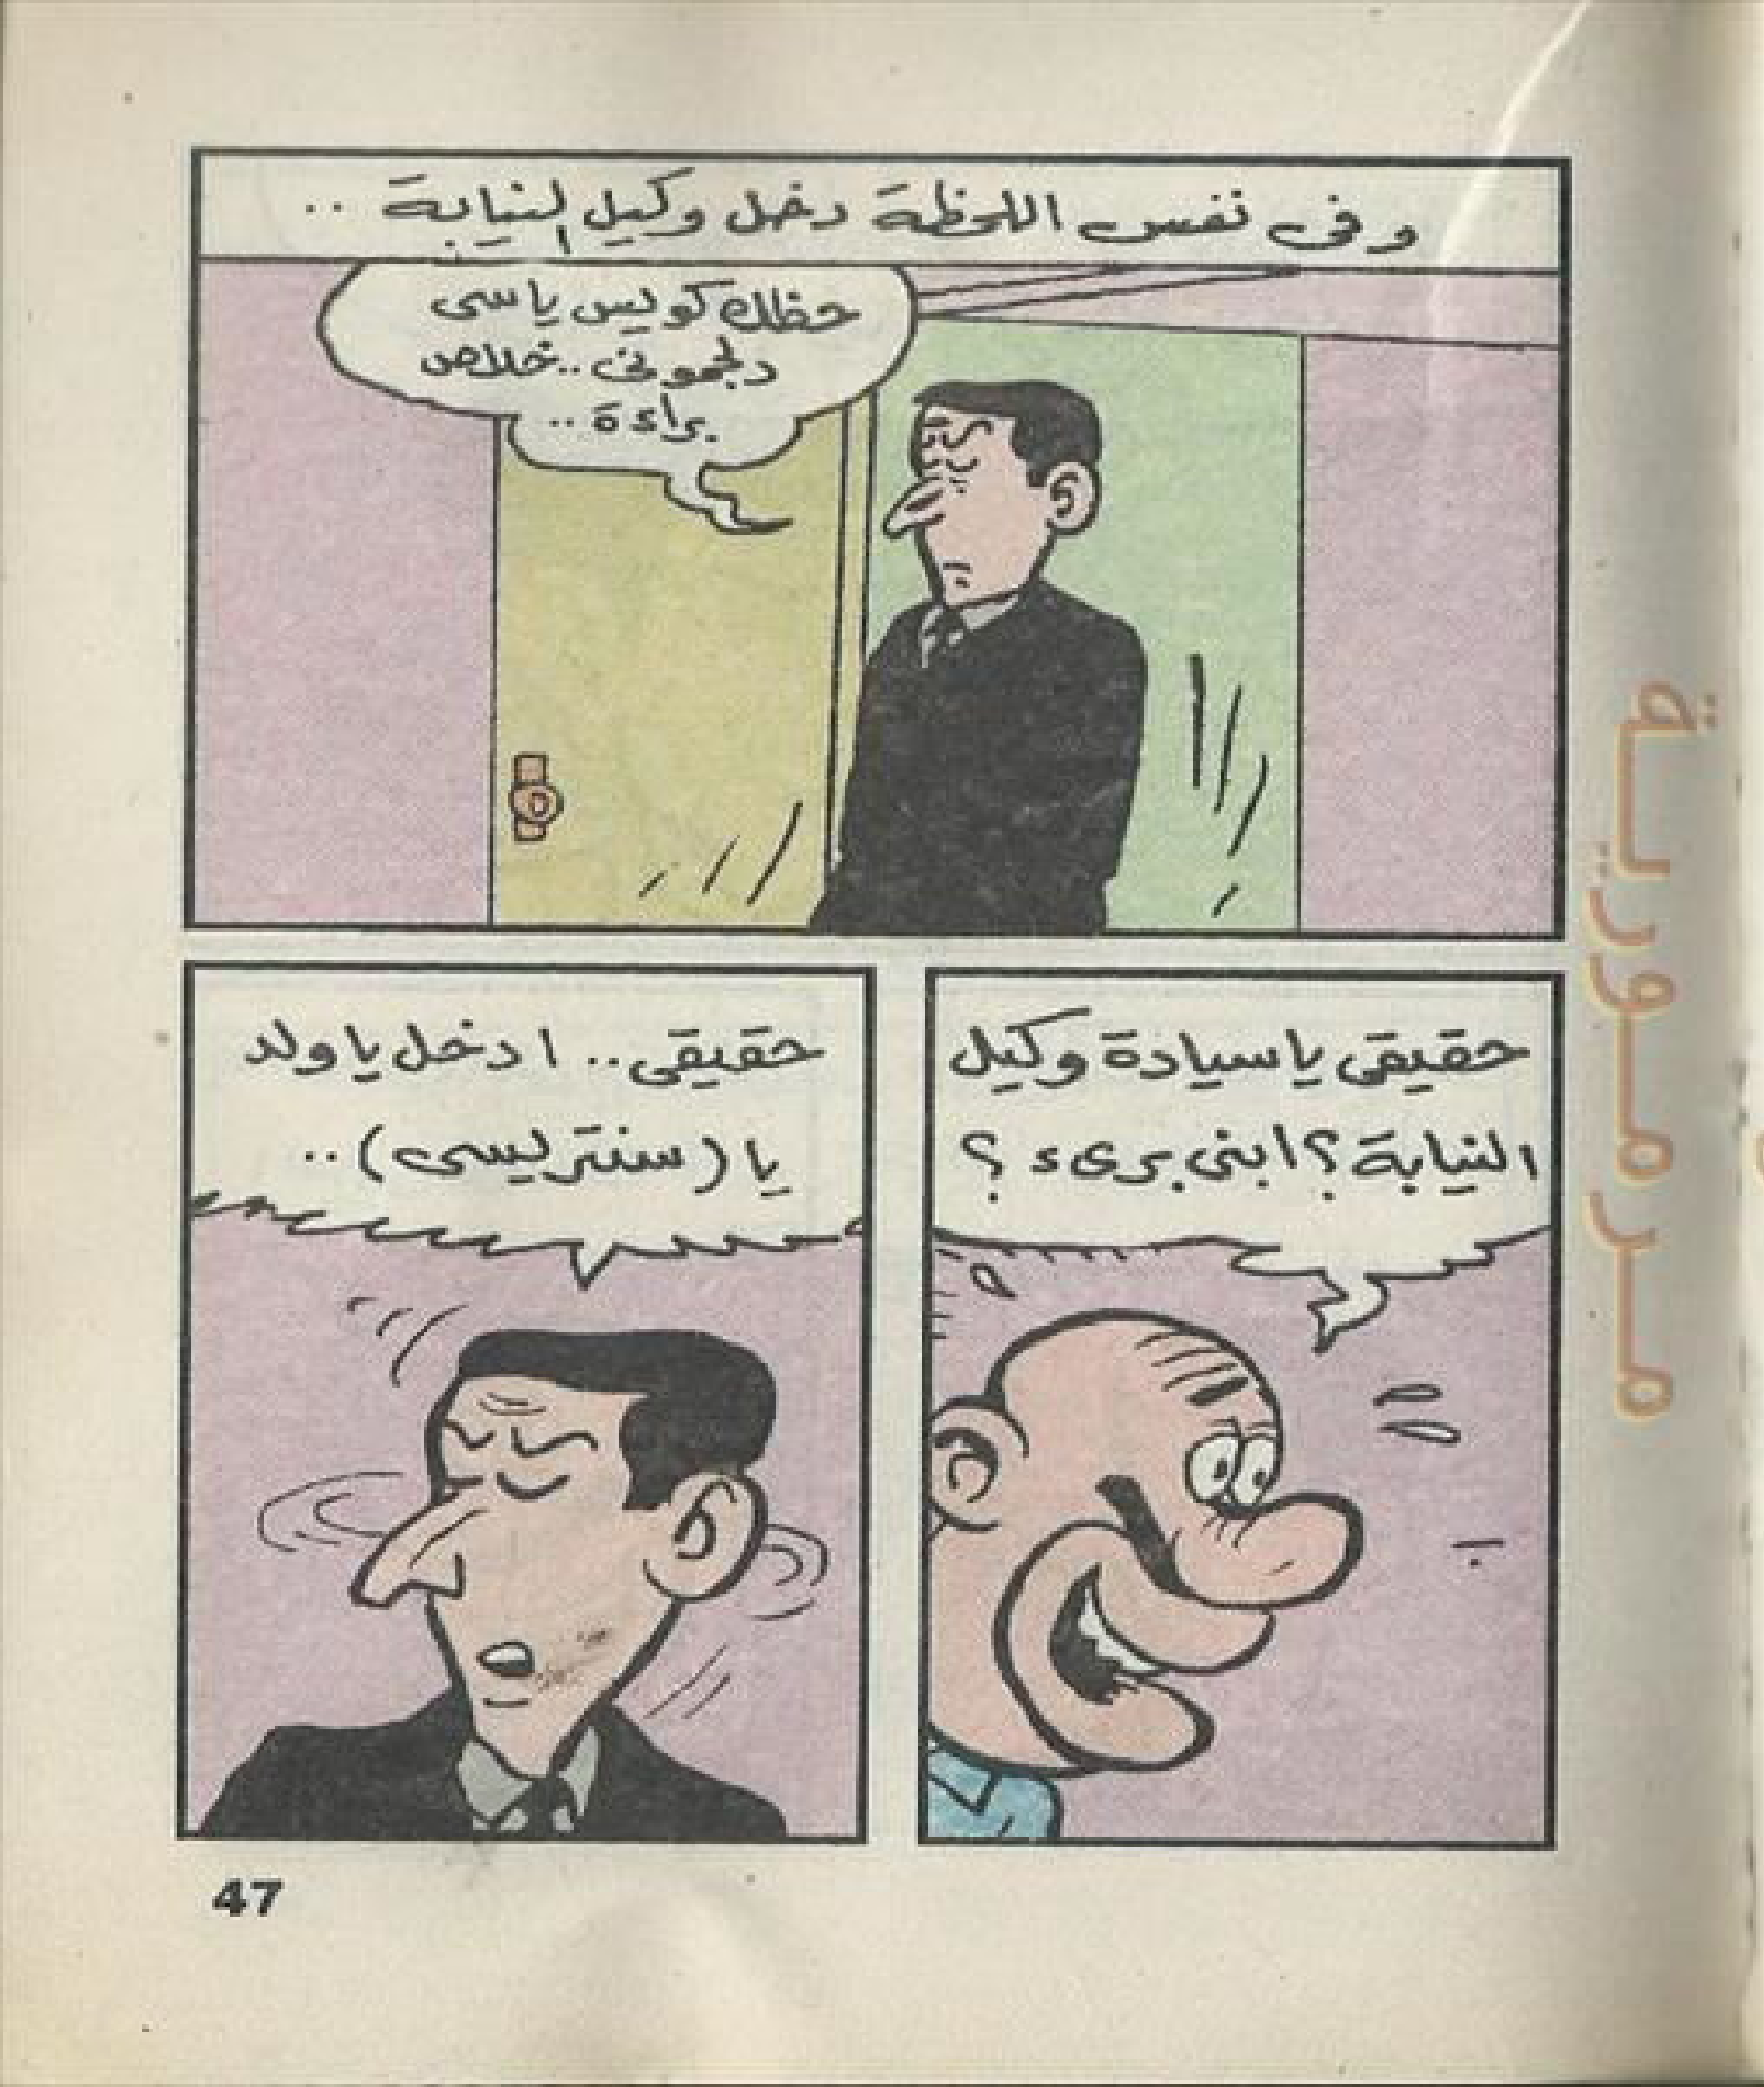 وفى نفس اللحظة دخل وكيل النيابة ..
حظك كويس ياسى
دلجمونى .. خلاص
براءة ..
حقيقى ياسيادة وكيل
النيابة ؟ ابنى برىء ؟
حقيقى .. ادخل ياولد
يا (سنتريسى) ..
47
مرمورية